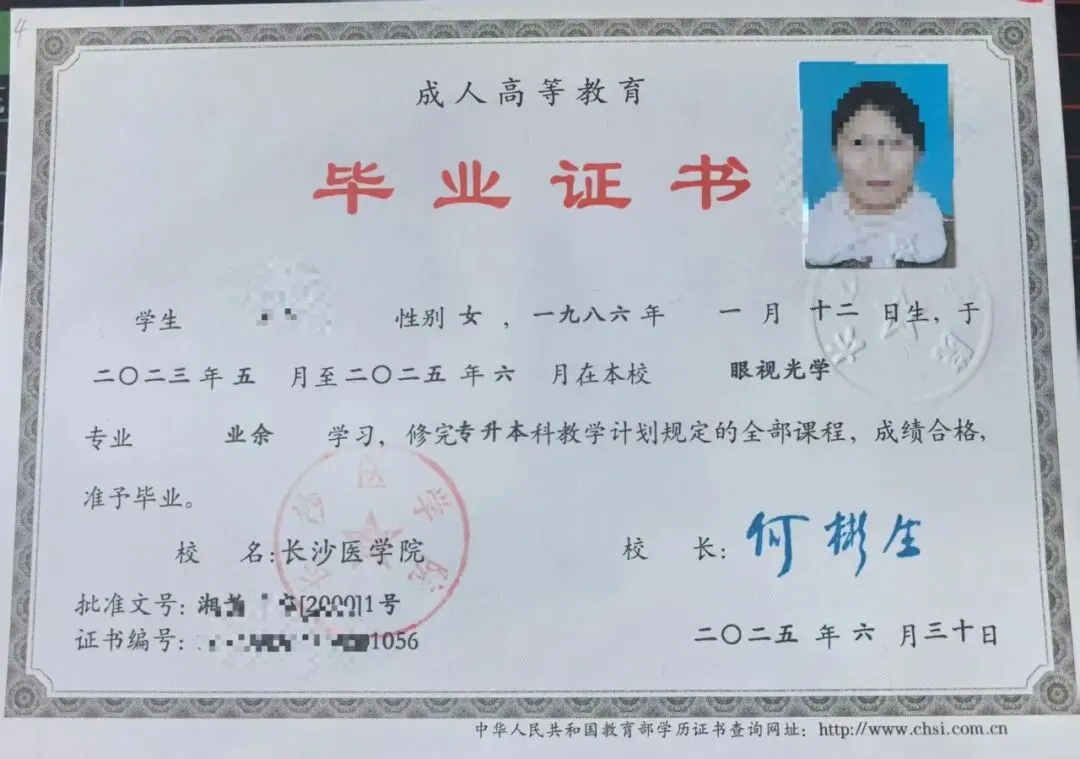 4
成人高等教育
毕业证书
学生 性别 女 ，一九八六年 一 月 十二 日生，于
二〇二三 年 五 月至二〇二五 年 六 月在本校 眼视光学
专业 业余 学习，修完专升本科教学计划规定的全部课程，成绩合格，
准予毕业。
校 名：长沙医学院
校 长：何彬生
批准文号：湘 [2000]1号
证书编号： 1056
二〇二五 年 六 月三十日
长沙医学院
中华人民共和国教育部学历证书查询网址：http://www.chsi.com.cn